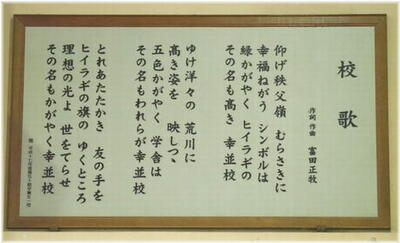 校歌
作詞 作曲 富田正牧
仰げ秩父嶺 むらさきに
幸福ねがう シンボルは
緑かがやく ヒイラギの
その名も高き 幸並校
ゆけ洋々の 荒川に
高き姿を 映しつゝ
五色かがやく 学舎は
その名もわれらが 幸並校
とれあたたかき 友の手を
ヒイラギの旗の ゆくところ
理想の光よ 世をてらせ
その名もかがやく 幸並校